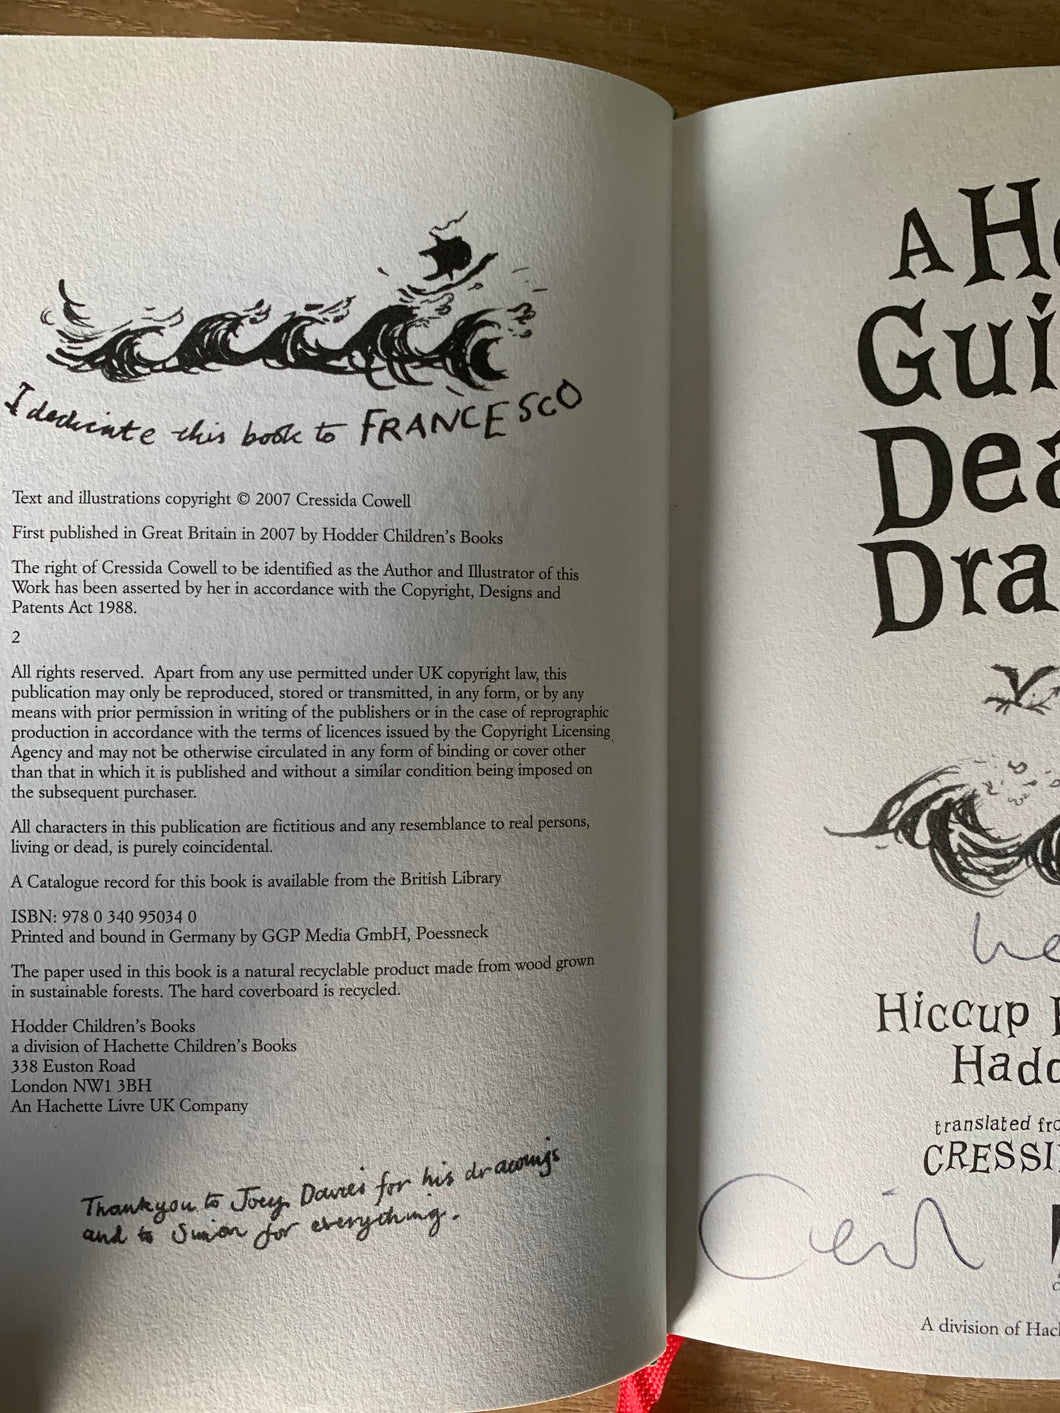 I dedicate this book to FRANCESCO
Text and illustrations copyright © 2007 Cressida Cowell
First published in Great Britain in 2007 by Hodder Children's Books
The right of Cressida Cowell to be identified as the Author and Illustrator of this
Work has been asserted by her in accordance with the Copyright, Designs and
Patents Act 1988.
2
All rights reserved. Apart from any use permitted under UK copyright law, this
publication may only be reproduced, stored or transmitted, in any form, or by any
means with prior permission in writing of the publishers or in the case of reprographic
production in accordance with the terms of licences issued by the Copyright Licensing
Agency and may not be otherwise circulated in any form of binding or cover other
than that in which it is published and without a similar condition being imposed on
the subsequent purchaser.
All characters in this publication are fictitious and any resemblance to real persons,
living or dead, is purely coincidental.
A Catalogue record for this book is available from the British Library
ISBN: 978 0 340 95034 0
Printed and bound in Germany by GGP Media GmbH, Poessneck
The paper used in this book is a natural recyclable product made from wood grown
in sustainable forests. The hard coverboard is recycled.
Hodder Children's Books
a division of Hachette Children's Books
338 Euston Road
London NW1 3BH
An Hachette Livre UK Company
Thankyou to Joey Davies for his drawings
and to Simon for everything.
A H
Gui
Dea
Dra
Hiccup
Hadd
translated fro
CRESSI
A division of Hach